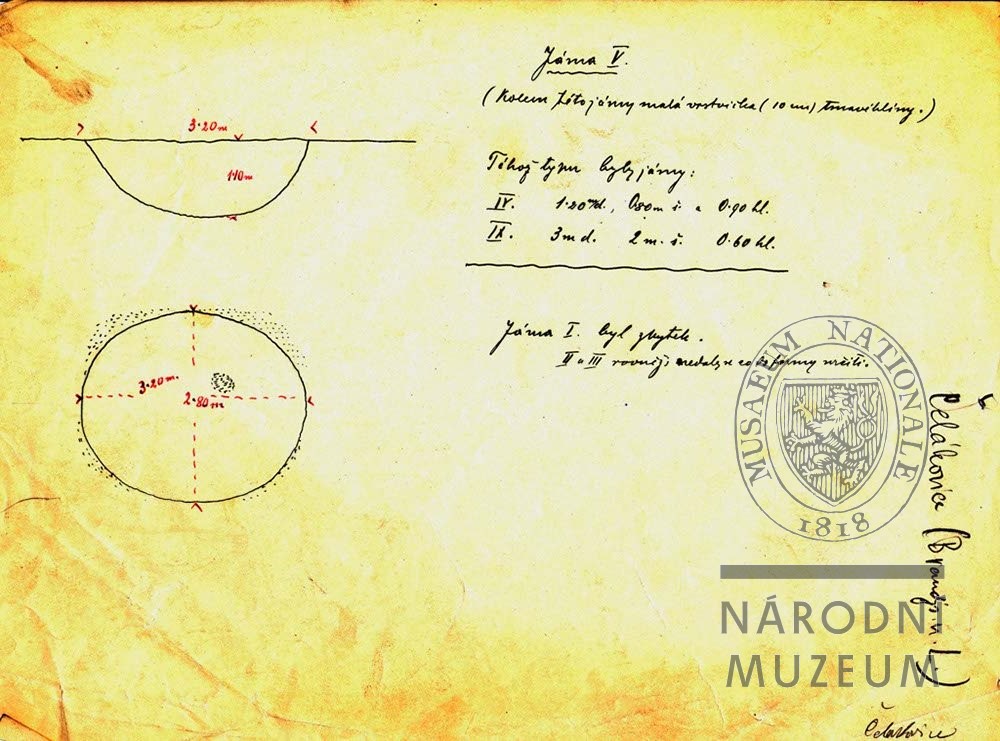 Jáma V.
(Kolem této jámy malá vrstvička (10 cm) tmavé hlíny.)
3·20m
110m
Téhož typu byly jámy:
IV. 1·20 m d., 0.80m š. a 0.90 hl.
IX. 3m d. 2 m. š. 0.60 hl.
Jáma I. byl zbytek.
II a III rovněž nedaly se co do formy určiti.
3·20m.
2·80m
MUSAEUM NATIONALE
1818
NÁRODNÍ
MUZEUM
Čelákovice (Brandýs n. L.)
Čelakovice